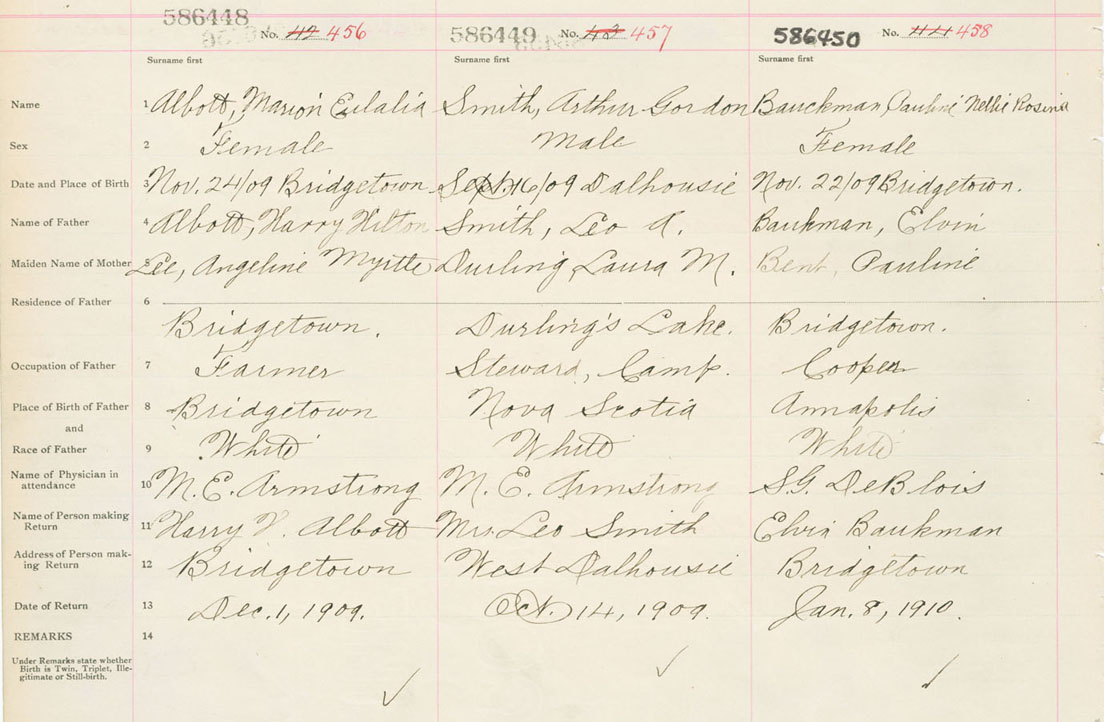 586448 586449 586450
No. 42 456 No. 43 457 No. 44 458
Surname first Surname first Surname first
Name 1 Abbott, Marion Eulalia Smith, Arthur Gordon Bauckman, Pauline Nellie Rosina
Sex 2 Female Male Female
Date and Place of Birth 3 Nov. 24/09 Bridgetown Sept. 16/09 Dalhousie Nov. 22/09 Bridgetown.
Name of Father 4 Abbott, Harry Hilton Smith, Leo A. Baukman, Elvin
Maiden Name of Mother 5 Lee, Angeline Myrtle Durling, Laura M. Bent, Pauline
Residence of Father 6
Bridgetown. Durling's Lake. Bridgetown.
Occupation of Father 7 Farmer Steward, Camp. Cooper
Place of Birth of Father 8 Bridgetown Nova Scotia Annapolis
and
Race of Father 9 White White White
Name of Physician in
attendance 10 M. E. Armstrong M. E. Armstrong S.G. DeBlois
Name of Person making
Return 11 Harry Abbott Mrs. Leo Smith Elvin Baukman
Address of Person mak-
ing Return 12 Bridgetown West Dalhousie Bridgetown
Date of Return 13 Dec. 1, 1909. Oct. 14, 1909. Jan. 8, 1910.
REMARKS 14
Under Remarks state whether
Birth is Twin, Triplet, Ille-
gitimate or Still-birth.